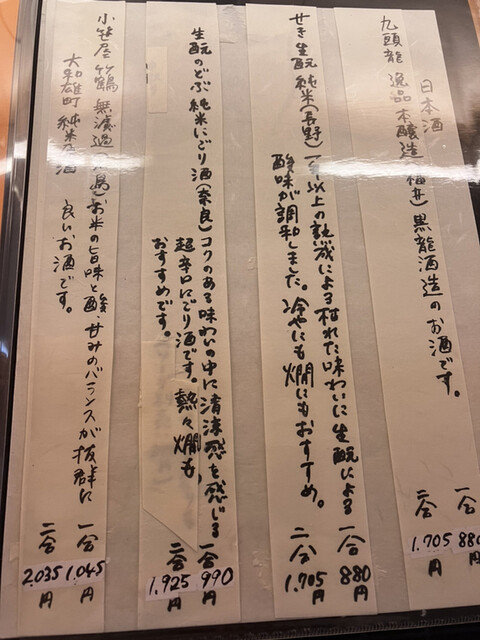 日本酒
九頭龍 逸品 本醸造(福井) 黒龍酒造のお酒です。
一合 880円
二合 1,705円
せき生酛 純米(長野) 一年以上の熟成による枯れた味わいに生酛による
酸味が調和しました。冷やにも燗にもおすすめ。
一合 880円
二合 1,705円
生酛のどぶ 純米にごり酒(奈良) コクのある味わいの中に清涼感を感じる
超辛口にごり酒です。熱々燗も、
おすすめです。
一合 990円
二合 1,925円
小笹屋 竹鶴 無濾過(広島) お米の旨味と酸、甘みのバランスが抜群に
大和雄町 純米原酒 良いお酒です。
一合 1,045円
二合 2,035円